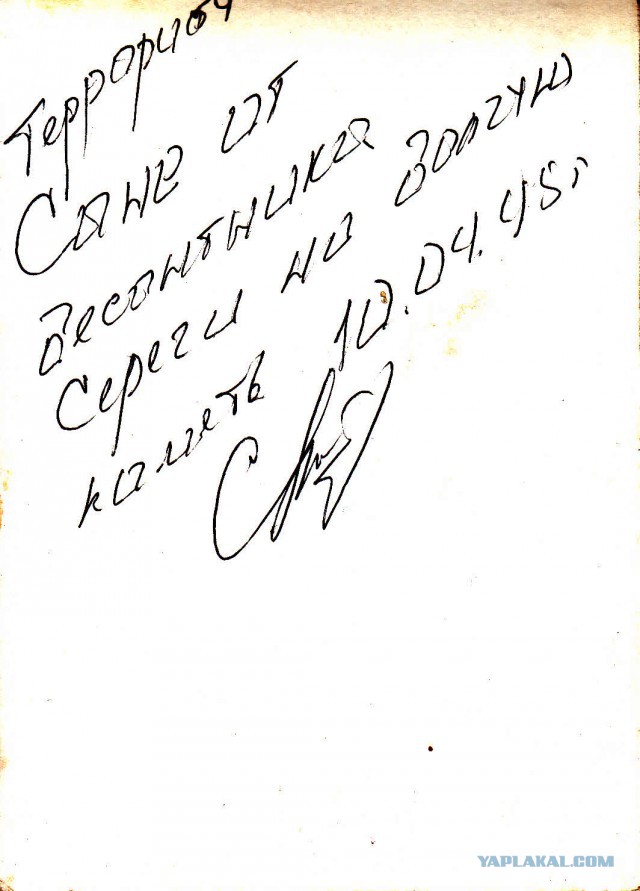 Террорист
Сане от
десантника
Сереги на долгую
память 10.04.95г
YAPLAKAL.COM